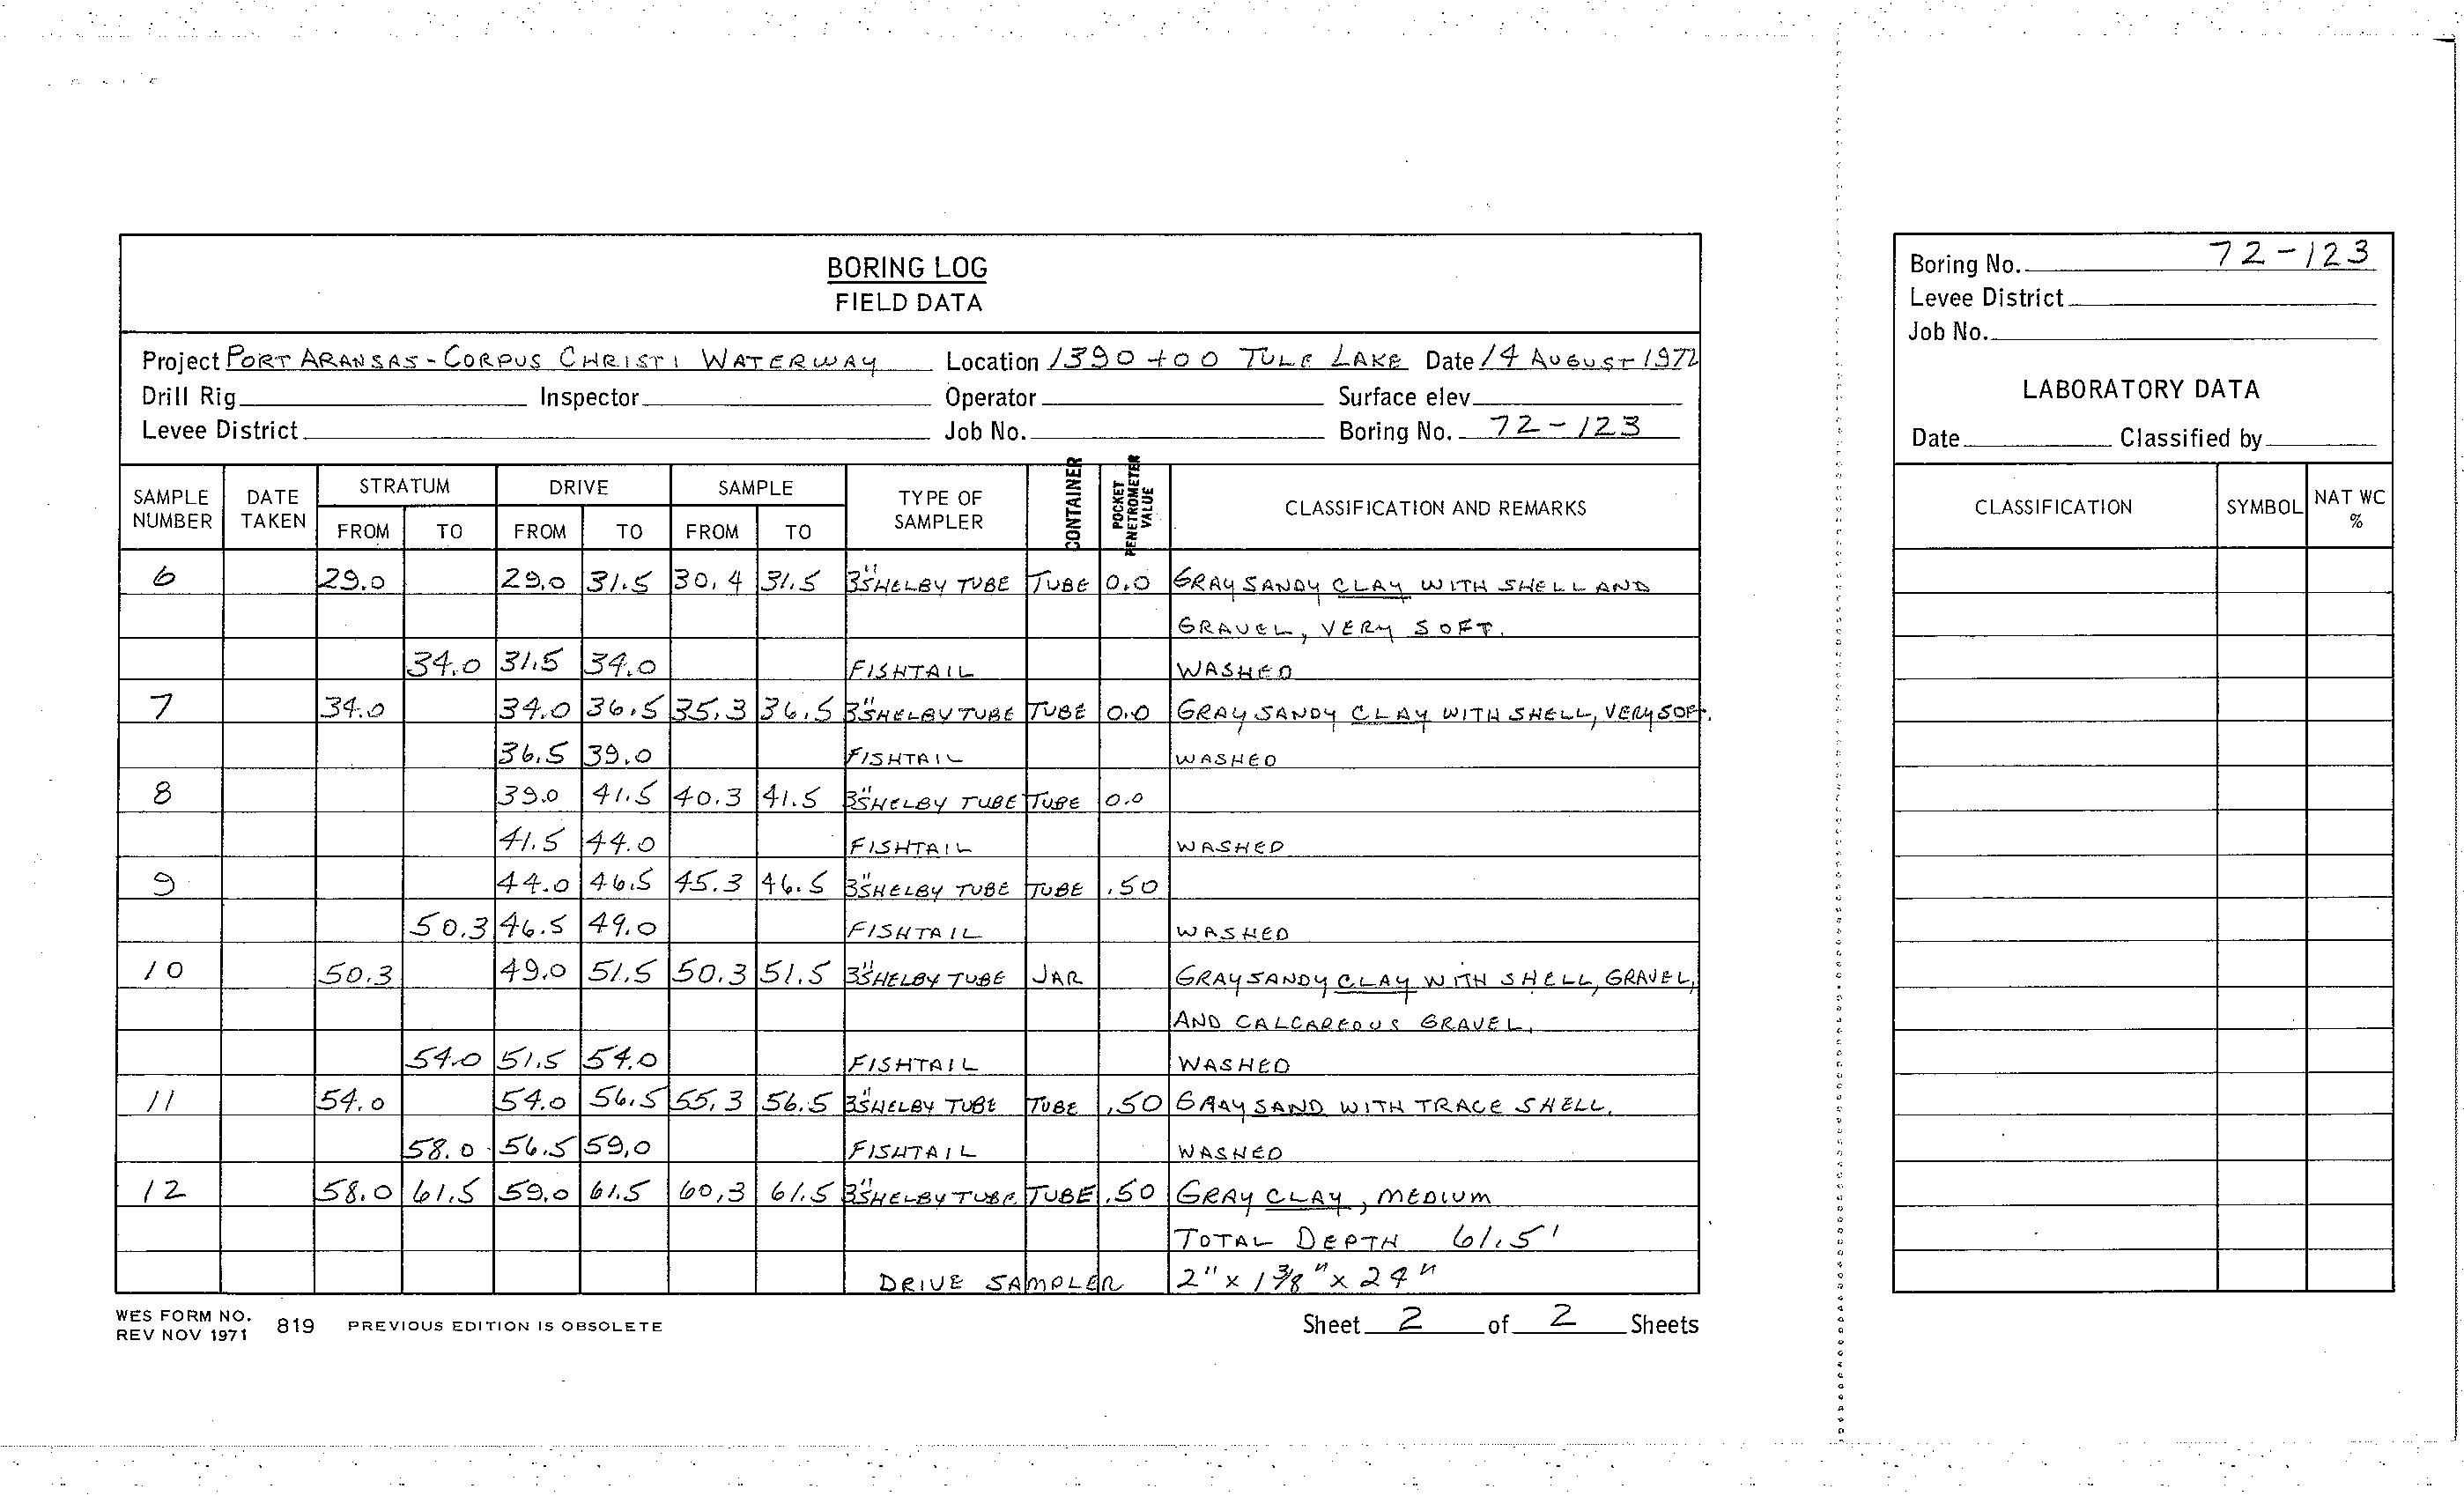 BORING LOG
FIELD DATA
Project PORT ARANSAS - CORPUS CHRISTI WATERWAY Location 1390+00 TULE LAKE Date 14 AUGUST 1972
Drill Rig Inspector Operator Surface elev.
Levee District Job No. Boring No. 72-123
SAMPLE NUMBER DATE TAKEN STRATUM FROM TO DRIVE FROM TO SAMPLE FROM TO TYPE OF SAMPLER CONTAINER POCKET PENETROMETER VALUE CLASSIFICATION AND REMARKS
6 29.0 29.0 31.5 30.4 31.5 3" SHELBY TUBE TUBE 0.0 GRAY SANDY CLAY WITH SHELL AND
GRAVEL, VERY SOFT.
34.0 31.5 34.0 FISHTAIL WASHED
7 34.0 34.0 36.5 35.3 36.5 3" SHELBY TUBE TUBE 0.0 GRAY SANDY CLAY WITH SHELL, VERY SOFT.
36.5 39.0 FISHTAIL WASHED
8 39.0 41.5 40.3 41.5 3" SHELBY TUBE TUBE 0.0
41.5 44.0 FISHTAIL WASHED
9 44.0 46.5 45.3 46.5 3" SHELBY TUBE TUBE .50
50.3 46.5 49.0 FISHTAIL WASHED
10 50.3 49.0 51.5 50.3 51.5 3" SHELBY TUBE JAR GRAY SANDY CLAY WITH SHELL, GRAVEL,
AND CALCAREOUS GRAVEL.
54.0 51.5 54.0 FISHTAIL WASHED
11 54.0 54.0 56.5 55.3 56.5 3" SHELBY TUBE TUBE .50 GRAY SAND WITH TRACE SHELL.
58.0 56.5 59.0 FISHTAIL WASHED
12 58.0 61.5 59.0 61.5 60.3 61.5 3" SHELBY TUBE TUBE .50 GRAY CLAY, MEDIUM
TOTAL DEPTH 61.5'
DRIVE SAMPLER 2" x 1 3/8" x 24"
WES FORM NO. 819 PREVIOUS EDITION IS OBSOLETE
REV NOV 1971
Sheet 2 of 2 Sheets
Boring No. 72-123
Levee District
Job No.
LABORATORY DATA
Date Classified by
CLASSIFICATION SYMBOL NAT WC %